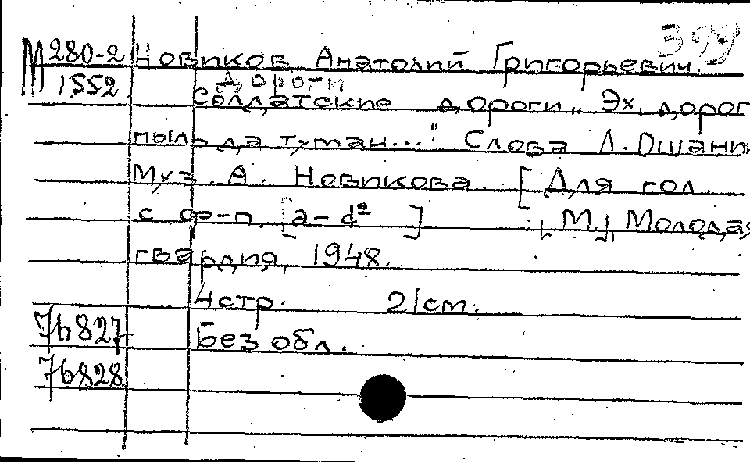 399
М 280-2 Новиков Анатолий Григорьевич.
1552 Дороги
Солдатские дороги „Эх, дорог
пыль да туман..." Слова Л. Ошани
Муз. А. Новикова [Для гол
с ф-п. [a-d²] [М], Молодая
гвардия, 1948.
4стр. 21см.
76827 Без обл.
76828